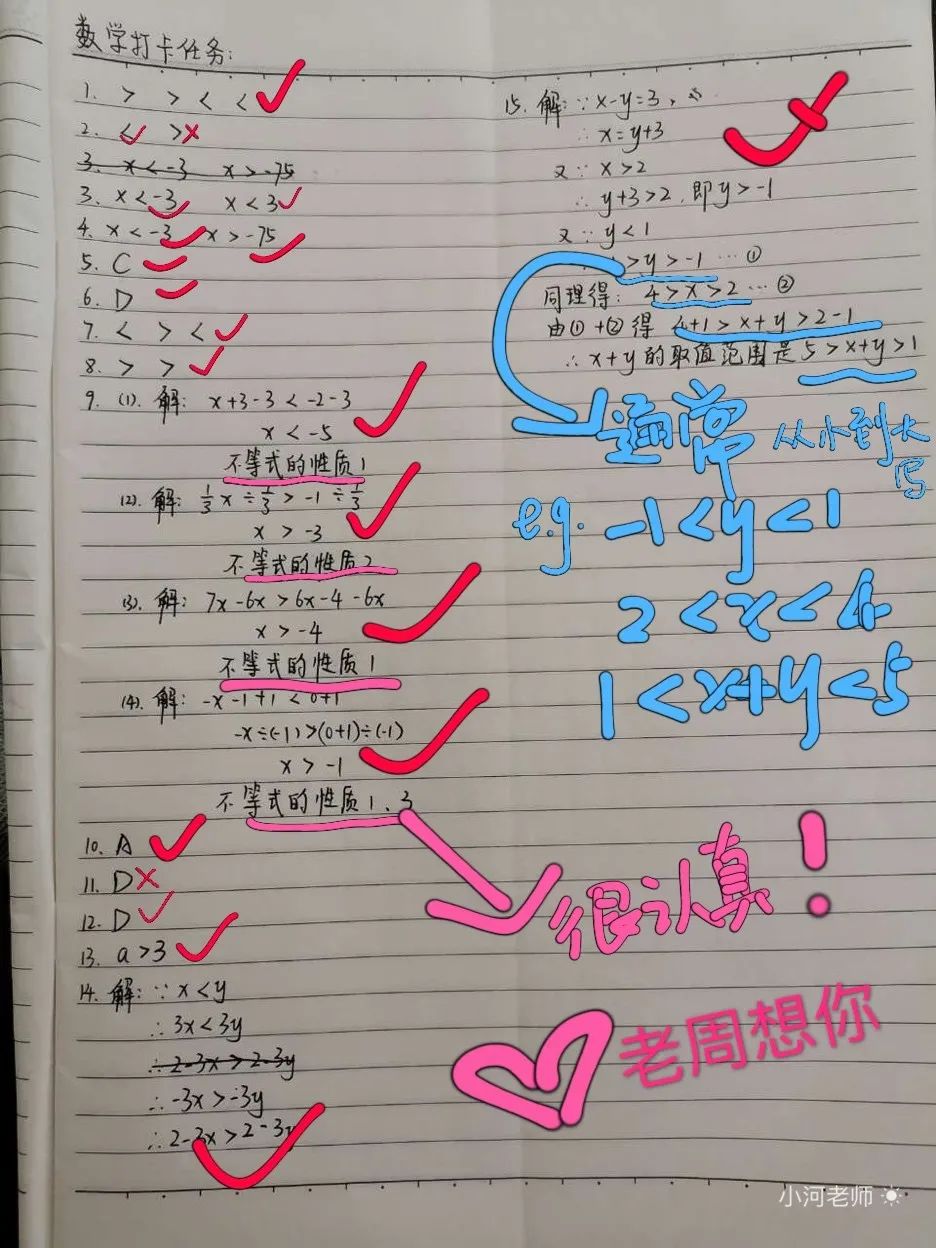 数学打卡任务:
1. > > < <
2. < >
3. x<-3 x>-75
3. x<-3 x<3
4. x<-3 x>-75
5. C
6. D
7. < > <
8. > >
9. (1). 解: x+3-3<-2-3
x<-5
不等式的性质1
(2). 解: 1/3 x ÷ 1/3 > -1 ÷ 1/3
x > -3
不等式的性质2
(3). 解: 7x-6x>6x-4-6x
x > -4
不等式的性质1
(4). 解: -x-1+1<0+1
-x÷(-1)>(0+1)÷(-1)
x > -1
不等式的性质1、3
10. A
11. D
12. D
13. a>3
14. 解: ∵x<y
∴3x<3y
∴2-3x>2-3y
∴-3x>-3y
∴2-3x>2-3y
15. 解: ∵x-y=3,
∴x=y+3
又∵x>2
∴y+3>2,即y>-1
又∵y<1
>y>-1 … ①
同理得: 4>x>2 … ②
由①+②得 4+1>x+y>2-1
∴x+y的取值范围是5>x+y>1
通常 从小到大
写
e.g. -1<y<1
2<x<4
1<x+y<5
很认真!
老周想你
小河老师